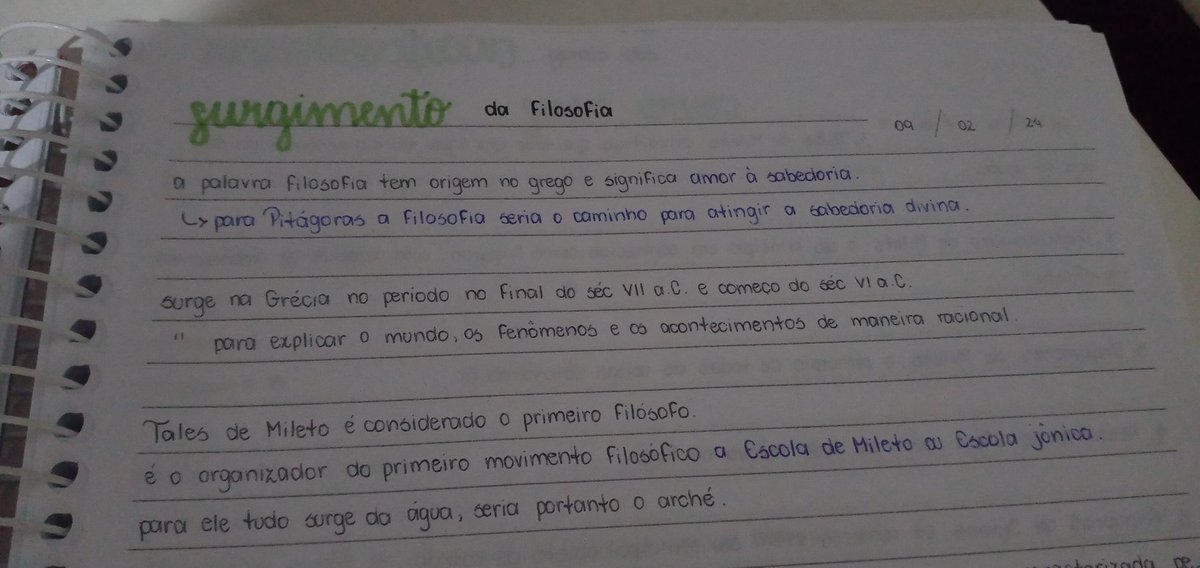 surgimento da filosofia 09 / 02 / 24
a palavra filosofia tem origem no grego e significa amor à sabedoria.
↳ para Pitágoras a filosofia seria o caminho para atingir a sabedoria divina.
surge na Grécia no periodo no final do séc VII a.C. e começo do séc VI a.C.
" para explicar o mundo, os fenômenos e os acontecimentos de maneira racional.
Tales de Mileto é considerado o primeiro filósofo.
é o organizador do primeiro movimento filosófico a Escola de Mileto ou Escola jônica.
para ele tudo surge da água, seria portanto o arché.